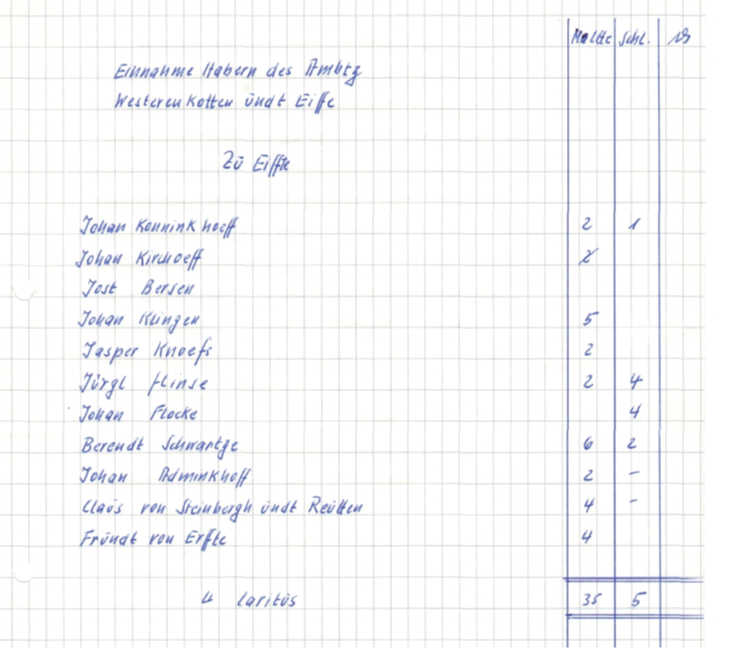 Maltte Schl.
Einnahme Habern des Ambtz
Westerenkotten ündt Eiffe
Zü Eiffte
Johan Konninkhoeff 2 1
Johan Kirchoeff 2
Jost Bersen
Johan Klingen 5
Jasper Knoefs 2
Jürgl flinse 2 4
Johan Flocke 4
Berendt Schwartze 6 2
Johan Adminkhoff 2 -
Claüs von Steinbergh ündt Reütten 4 -
Fründt von Erfte 4
laritüs 35 5